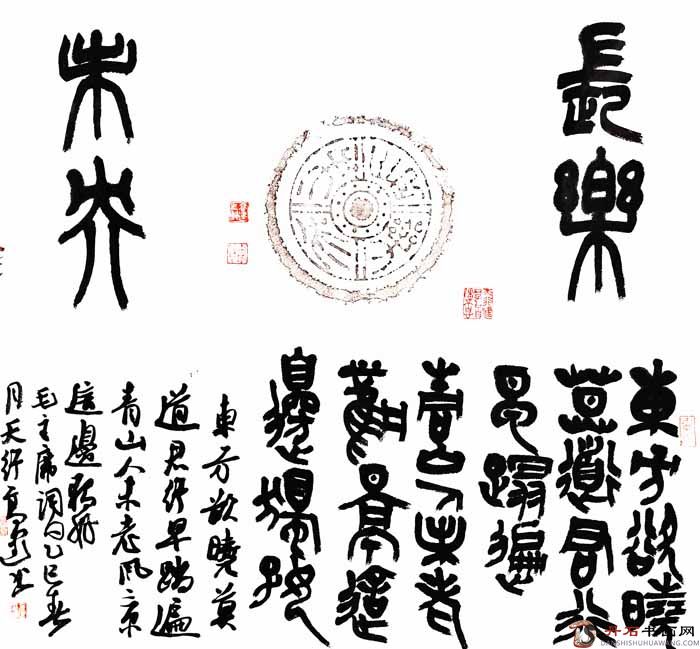 長樂
未央
東方欲曉
莫道君行
早踏遍
青山人未老
風景這
邊獨好
東方欲曉莫
道君行早踏遍
青山人未老風景
這邊獨好
毛主席詞句乙巳春
月天行
丹石书画网
DANSHISHUHUAWANG.COM